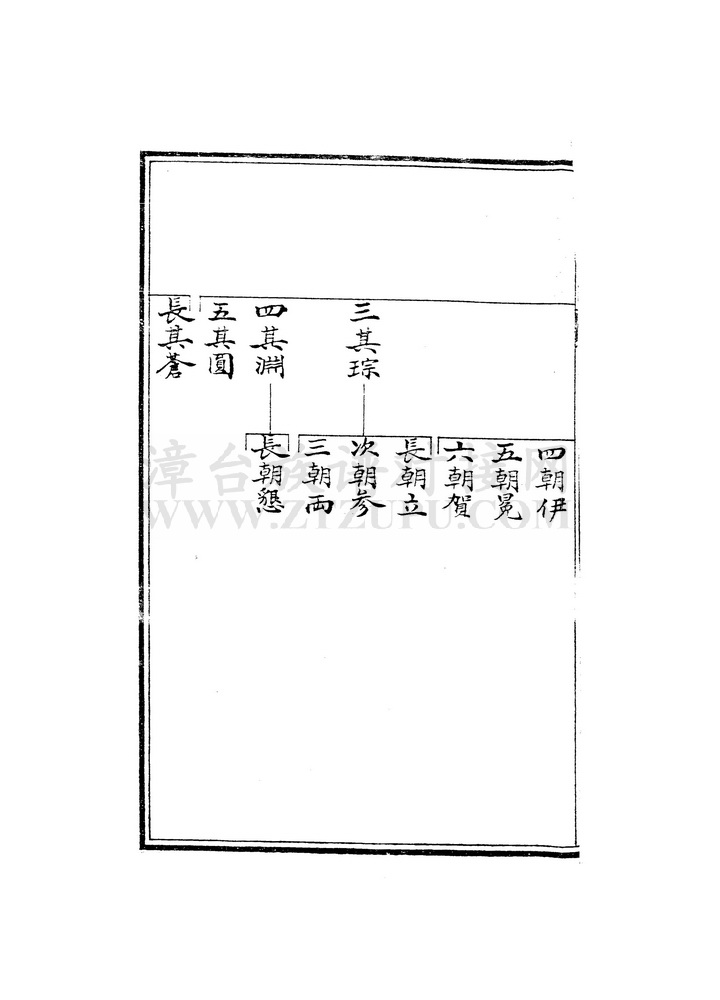 三其琮
四其淵
五其圓
長其蒼
四朝伊
五朝冕
六朝賀
長朝立
次朝參
三朝両
長朝懇
漳台族谱对接网
WWW.ZTZUPU.COM